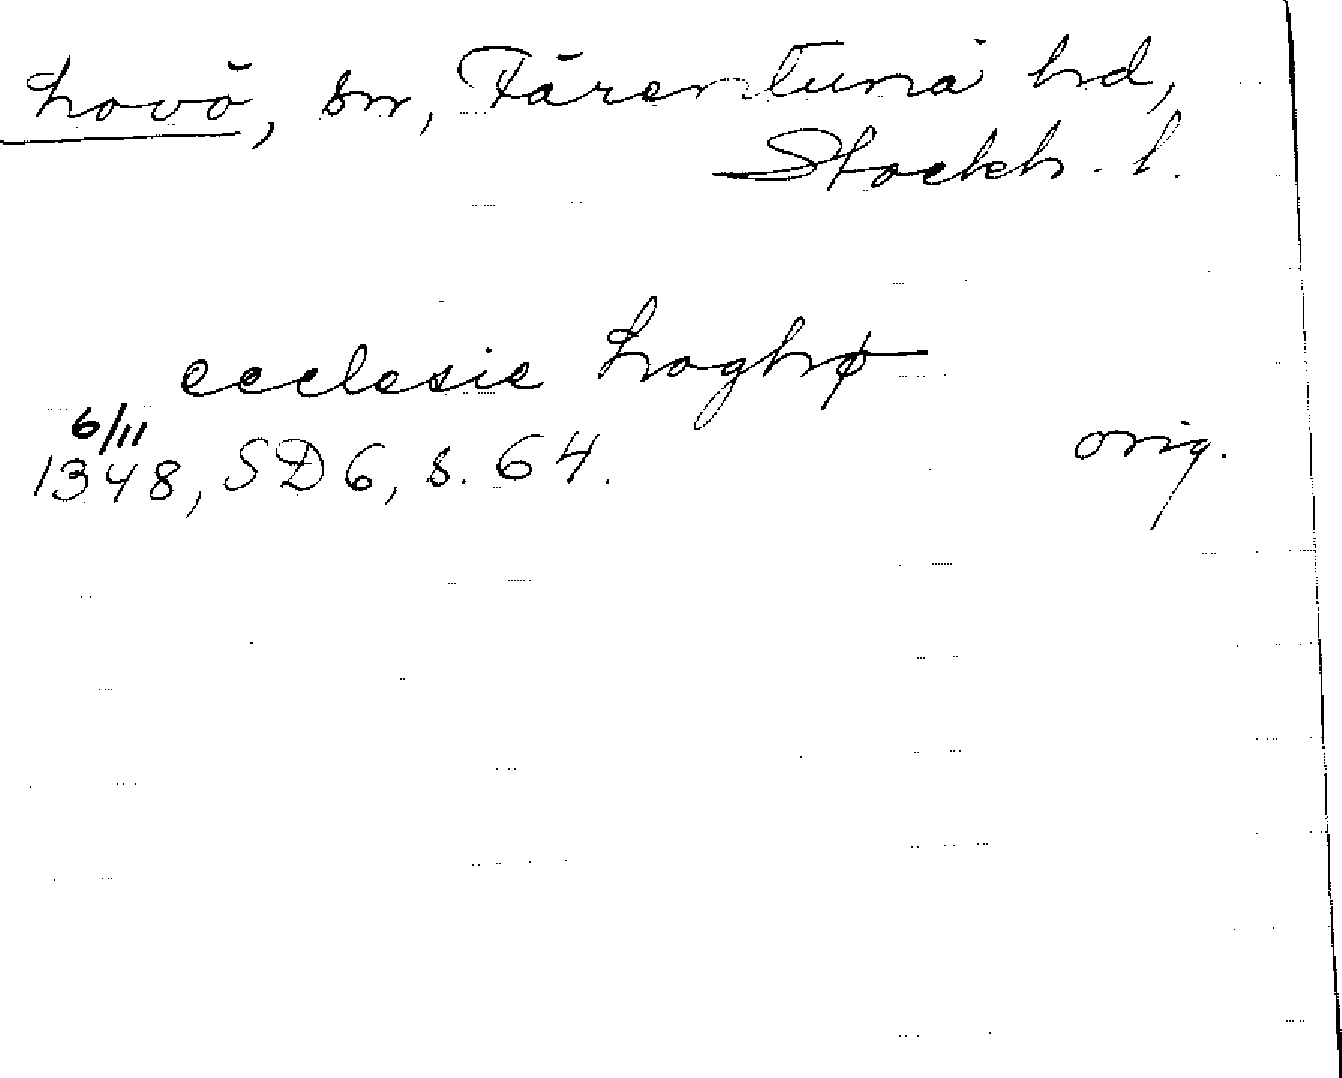 Lovö, sn, Färentuna hd,
Stockh. l.
ecclesie Loghø
6/11
1348, SD 6, s. 64.
orig.